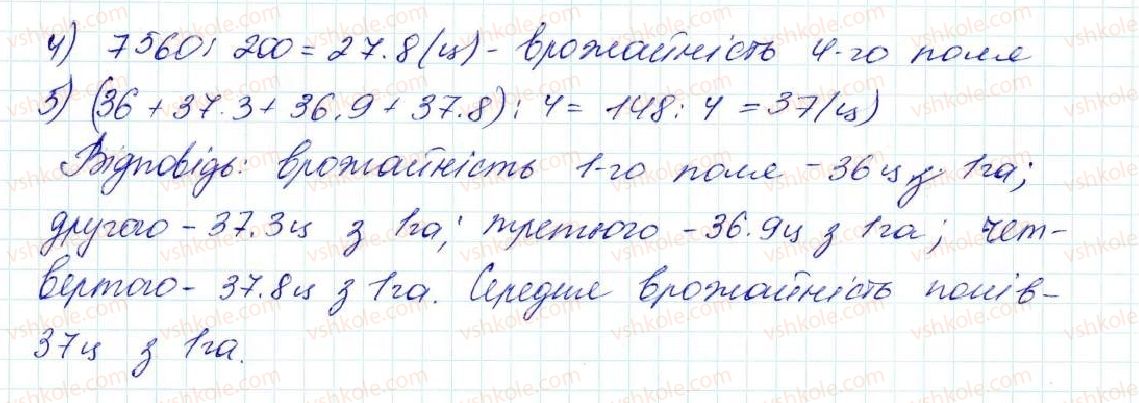 4) 7560 : 200 = 27.8 (ц) - врожайність 4-го поля
5) (36 + 37.3 + 36.9 + 37.8) : 4 = 148 : 4 = 37 (ц)
Відповідь: врожайність 1-го поля - 36 ц з 1га;
другого - 37.3ц з 1га; третього - 36.9ц з 1га; чет-
вертого - 37.8ц з 1га. Середня врожайність полів -
37ц з 1га.